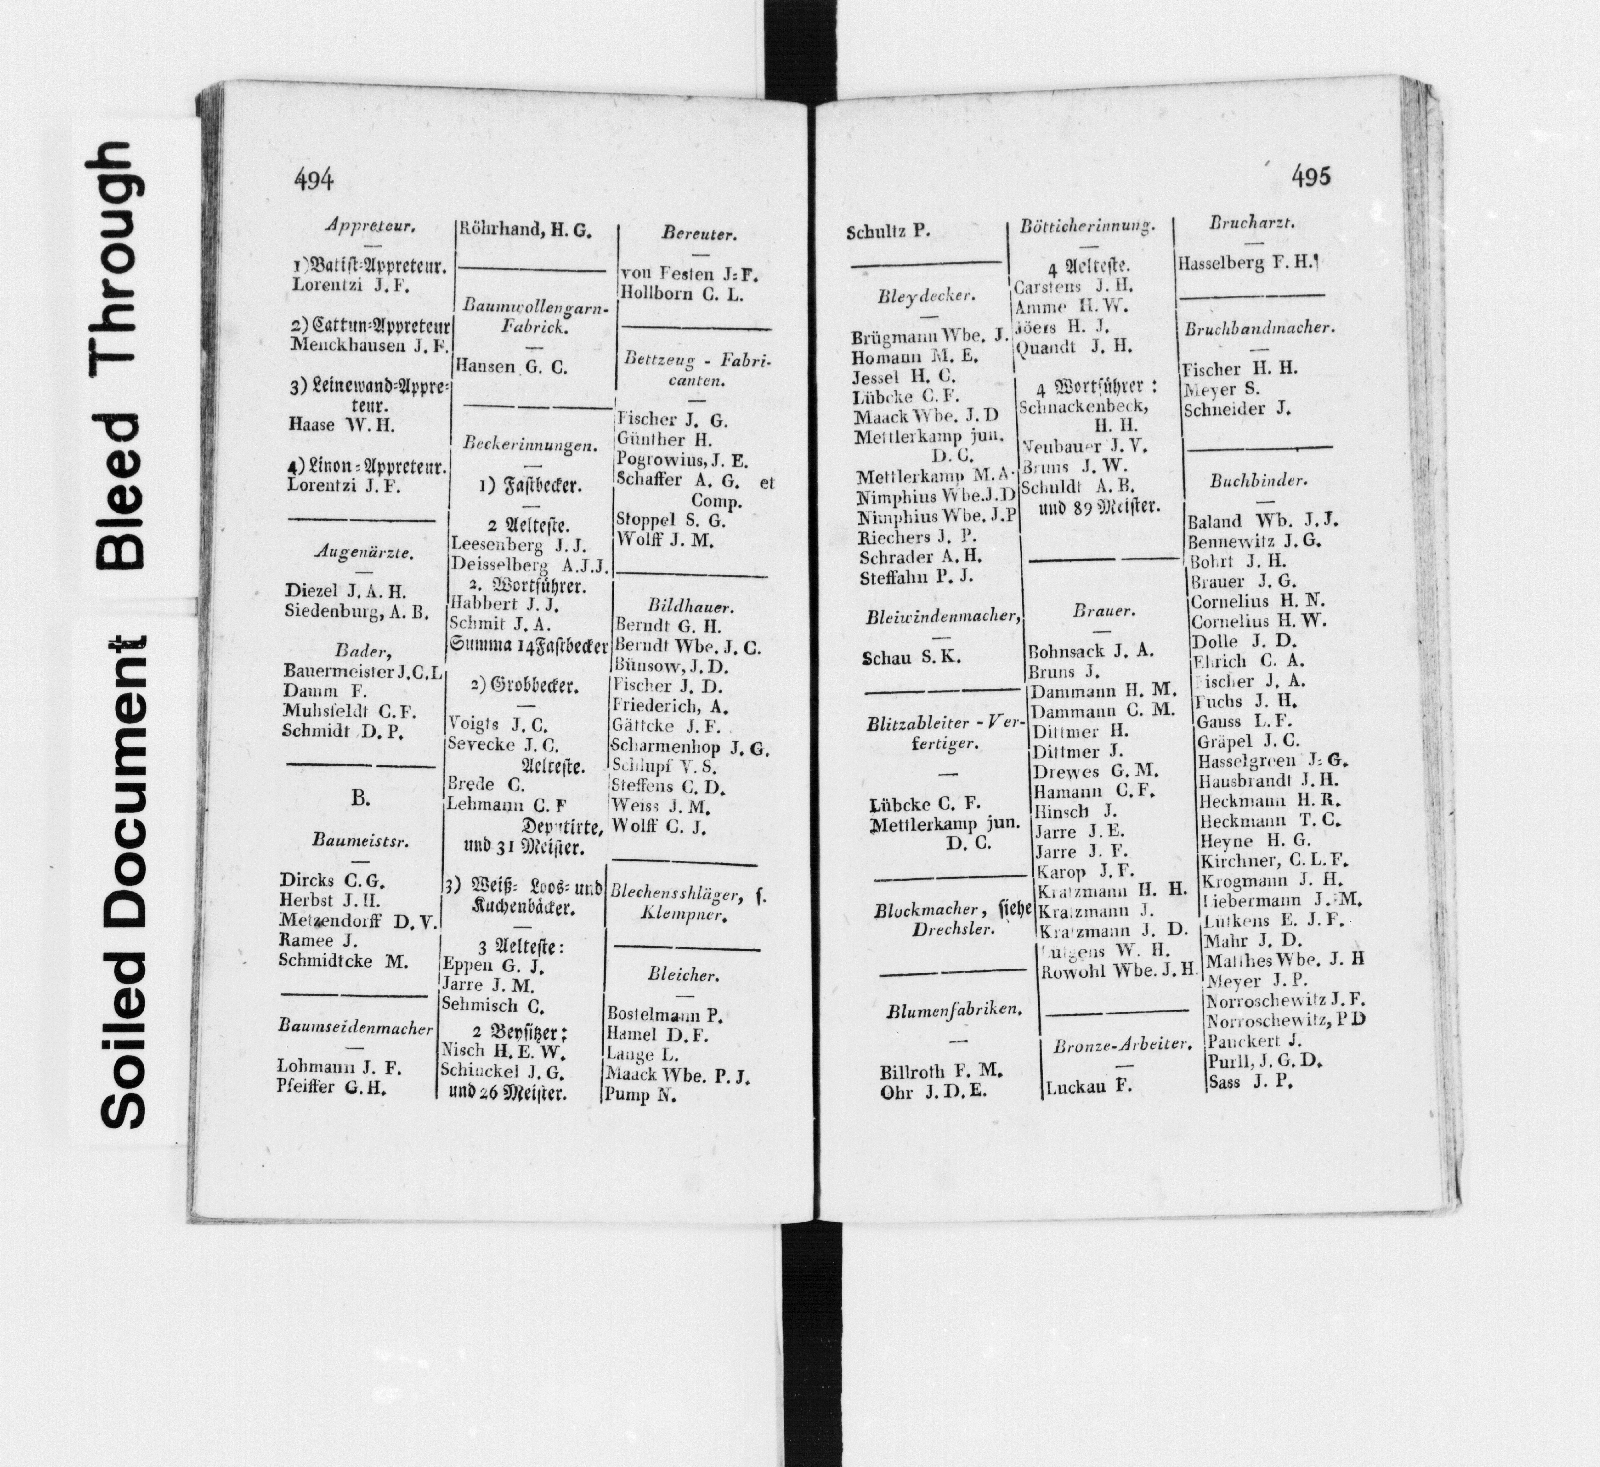 Soiled Document Bleed Through
494
Appreteur.
1) Batist-Appreteur.
Lorentzi J. F.
2) Cattun-Appreteur
Menckhausen J. F.
3) Leinewand-Appre-
teur.
Haase W. H.
4) Linon-Appreteur.
Lorentzi J. F.
Augenärzte.
Diezel J. A. H.
Siedenburg, A. B.
Bader,
Bauermeister J. C. L
Damm F.
Muhsfeldt C. F.
Schmidt D. P.
B.
Baumeistsr.
Dircks C. G.
Herbst J. H.
Metzendorff D. V.
Ramee J.
Schmidtcke M.
Baumseidenmacher
Lohmann J. F.
Pfeiffer G. H.
Röhrhand, H. G.
Baumwollengarn-
Fabrick.
Hansen G. C.
Beckerinnungen.
1) Fastbecker.
2 Aelteste.
Leesenberg J. J.
Deisselberg A. J. J.
2. Wortführer.
Habbert J. J.
Schmit J. A.
Summa 14 Fastbecker
2) Grobbecker.
Voigts J. C.
Sevecke J. C.
Aelteste.
Brede C.
Lehmann C. F
Deputirte,
und 31 Meister.
3) Weiß- Loos- und
Kuchenbäcker.
3 Aelteste:
Eppen G. J.
Jarre J. M.
Sehmisch C.
2 Beysitzer:
Nisch H. E. W.
Schinckel J. G.
und 26 Meister.
Bereuter.
von Festen J. F.
Hollborn C. L.
Bettzeug - Fabri-
canten.
Fischer J. G.
Günther H.
Pogrowius, J. E.
Schaffer A. G. et
Comp.
Stoppel S. G.
Wolff J. M.
Bildhauer.
Berndt G. H.
Berndt Wbe. J. C.
Bünsow, J. D.
Fischer J. D.
Friederich, A.
Gättcke J. F.
Scharmenhop J. G.
Schlupf V. S.
Steffens C. D.
Weiss J. M.
Wolff C. J.
Blechensshläger, s.
Klempner.
Bleicher.
Bostelmann P.
Hamel D. F.
Lange L.
Maack Wbe. P. J.
Pump N.
495
Schultz P.
Bleydecker.
Brügmann Wbe. J.
Homann M. E.
Jessel H. C.
Lübcke C. F.
Maack Wbe. J. D
Mettlerkamp jun.
D. C.
Mettlerkamp M. A.
Nimphius Wbe. J. D
Nimphius Wbe. J. P
Riechers J. P.
Schrader A. H.
Steffahn P. J.
Bleiwindenmacher,
Schau S. K.
Blitzableiter - Ver-
fertiger.
Lübcke C. F.
Mettlerkamp jun.
D. C.
Blockmacher, siehe
Drechsler.
Blumenfabriken.
Billroth F. M.
Ohr J. D. E.
Bötticherinnung.
4 Aelteste.
Carstens J. H.
Amme H. W.
Jöers H. J.
Quandt J. H.
4 Wortführer:
Schnackenbeck,
H. H.
Neubauer J. V.
Bruns J. W.
Schuldt A. B.
und 89 Meister.
Brauer.
Bohnsack J. A.
Bruns J.
Dammann H. M.
Dammann C. M.
Dittmer H.
Dittmer J.
Drewes G. M.
Hamann C. F.
Hinsch J.
Jarre J. E.
Jarre J. F.
Karop J. F.
Kratzmann H. H.
Kratzmann J.
Kratzmann J. D.
Lutgens W. H.
Rowohl Wbe. J. H
Bronze-Arbeiter.
Luckau F.
Brucharzt.
Hasselberg F. H.
Bruchbandmacher.
Fischer H. H.
Meyer S.
Schneider J.
Buchbinder.
Baland Wb. J. J.
Bennewitz J. G.
Bohrt J. H.
Brauer J. G.
Cornelius H. N.
Cornelius H. W.
Dolle J. D.
Ehrich C. A.
Fischer J. A.
Fuchs J. H.
Gauss L. F.
Gräpel J. C.
Hasselgreen J. G.
Hausbrandt J. H.
Heckmann H. R.
Heckmann T. C.
Heyne H. G.
Kirchner, C. L. F.
Krogmann J. H.
Liebermann J. M.
Lütkens E. J. F.
Mahr J. D.
Matthes Wbe. J. H
Meyer J. P.
Norroschewitz J. F.
Norroschewitz, P D
Pauckert J.
Purll, J. G. D.
Sass J. P.